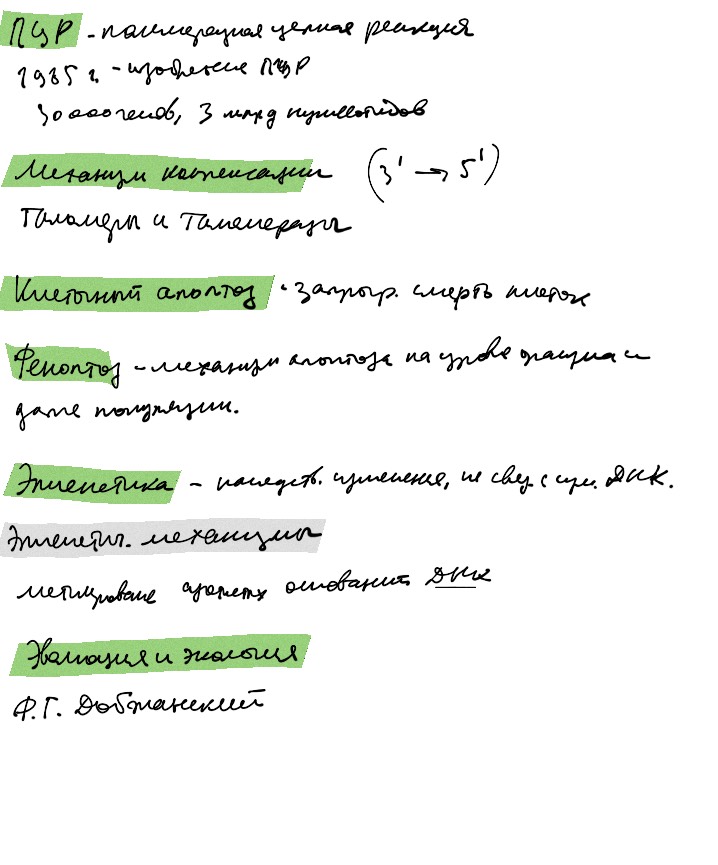 ПЦР - полимеразная цепная реакция
1985 г. - изобретение ПЦР
30000 генов, 3 млрд нуклеотидов
Механизм компенсации (3' → 5')
Таломеры и Таломеразы
Клеточный апоптоз - запрогр. смерть клеток
Феноптоз - механизм апоптоза на уровне организма и
даже популяции.
Эпигенетика - наследств. изменения, не связ. с изм. ДНК.
Эпигенетич. механизмы
метилирование азотистых оснований ДНК
Эволюция и экология
Ф.Г. Добжанский